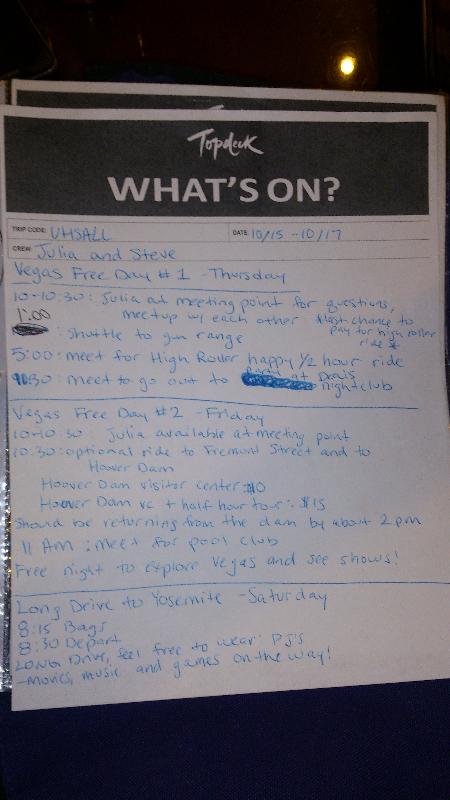 Topdeck
WHAT'S ON?
TRIP CODE: UHSALL DATE: 10/15 - 10/17
CREW: Julia and Steve
Vegas Free Day #1 - Thursday
10-10:30: Julia at meeting point for questions,
meetup w/ each other *last chance to
pay for high roller
ride*
1:00
: Shuttle to gun range
5:00: meet for High Roller happy 1/2 hour ride
30: meet to go out to
at Drais
nightclub
Vegas Free Day #2 - Friday
10-10:30: Julia available at meeting point
10:30: optional ride to Fremont Street and to
Hoover Dam
Hoover Dam visitor center: $10
Hoover Dam vc + half hour tour: $15
Should be returning from the dam by about 2pm
11 AM: meet for pool club
Free night to explore Vegas and see shows!
Long Drive to Yosemite - Saturday
8:15 Bags
8:30 Depart
LONG Drive, feel free to wear PJ's
- Movies, music and games on the way!